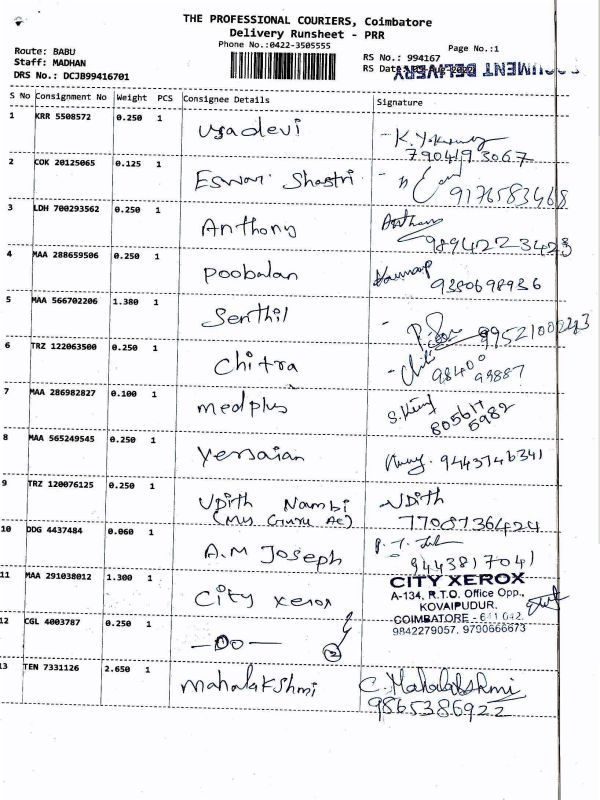 THE PROFESSIONAL COURIERS, Coimbatore
Delivery Runsheet - PRR
Phone No.:0422-3505555
Page No.:1
Route: BABU
Staff: MADHAN
DRS No.: DCJB99416701
RS No.: 994167
RS Date
DOCUMENT DELIVERY
S No Consignment No Weight PCS Consignee Details Signature
1 KRR 5508572 0.250 1 Usadevi K.
7904193067
2 COK 20125065 0.125 1 Eswari Shastri
9176583468
3 LDH 700293562 0.250 1 Anthony Anthony
9894223423
4 MAA 288659506 0.250 1 Poobalan
9380698936
5 MAA 566702206 1.380 1 Senthil
6 TRZ 122063500 0.250 1 Chitra
98400
99887
7 MAA 286982827 0.100 1 medplus S.
805617
5982
8 MAA 565249545 0.250 1 Yersaian 9443746341
9 TRZ 120076125 0.250 1 Udith Nambi Udith
7708736424
10 DDG 4437484 0.060 1 A.M Joseph
9443817041
11 MAA 291038012 1.300 1 City xerox
CITY XEROX
A-134, R.T.O. Office Opp.,
KOVAIPUDUR.
COIMBATORE - 641 042.
9842279057, 9790666673
12 CGL 4003787 0.250 1 —Do— 2
13 TEN 7331126 2.650 1 mahalakshmi C. Mahalakshmi
9865386922